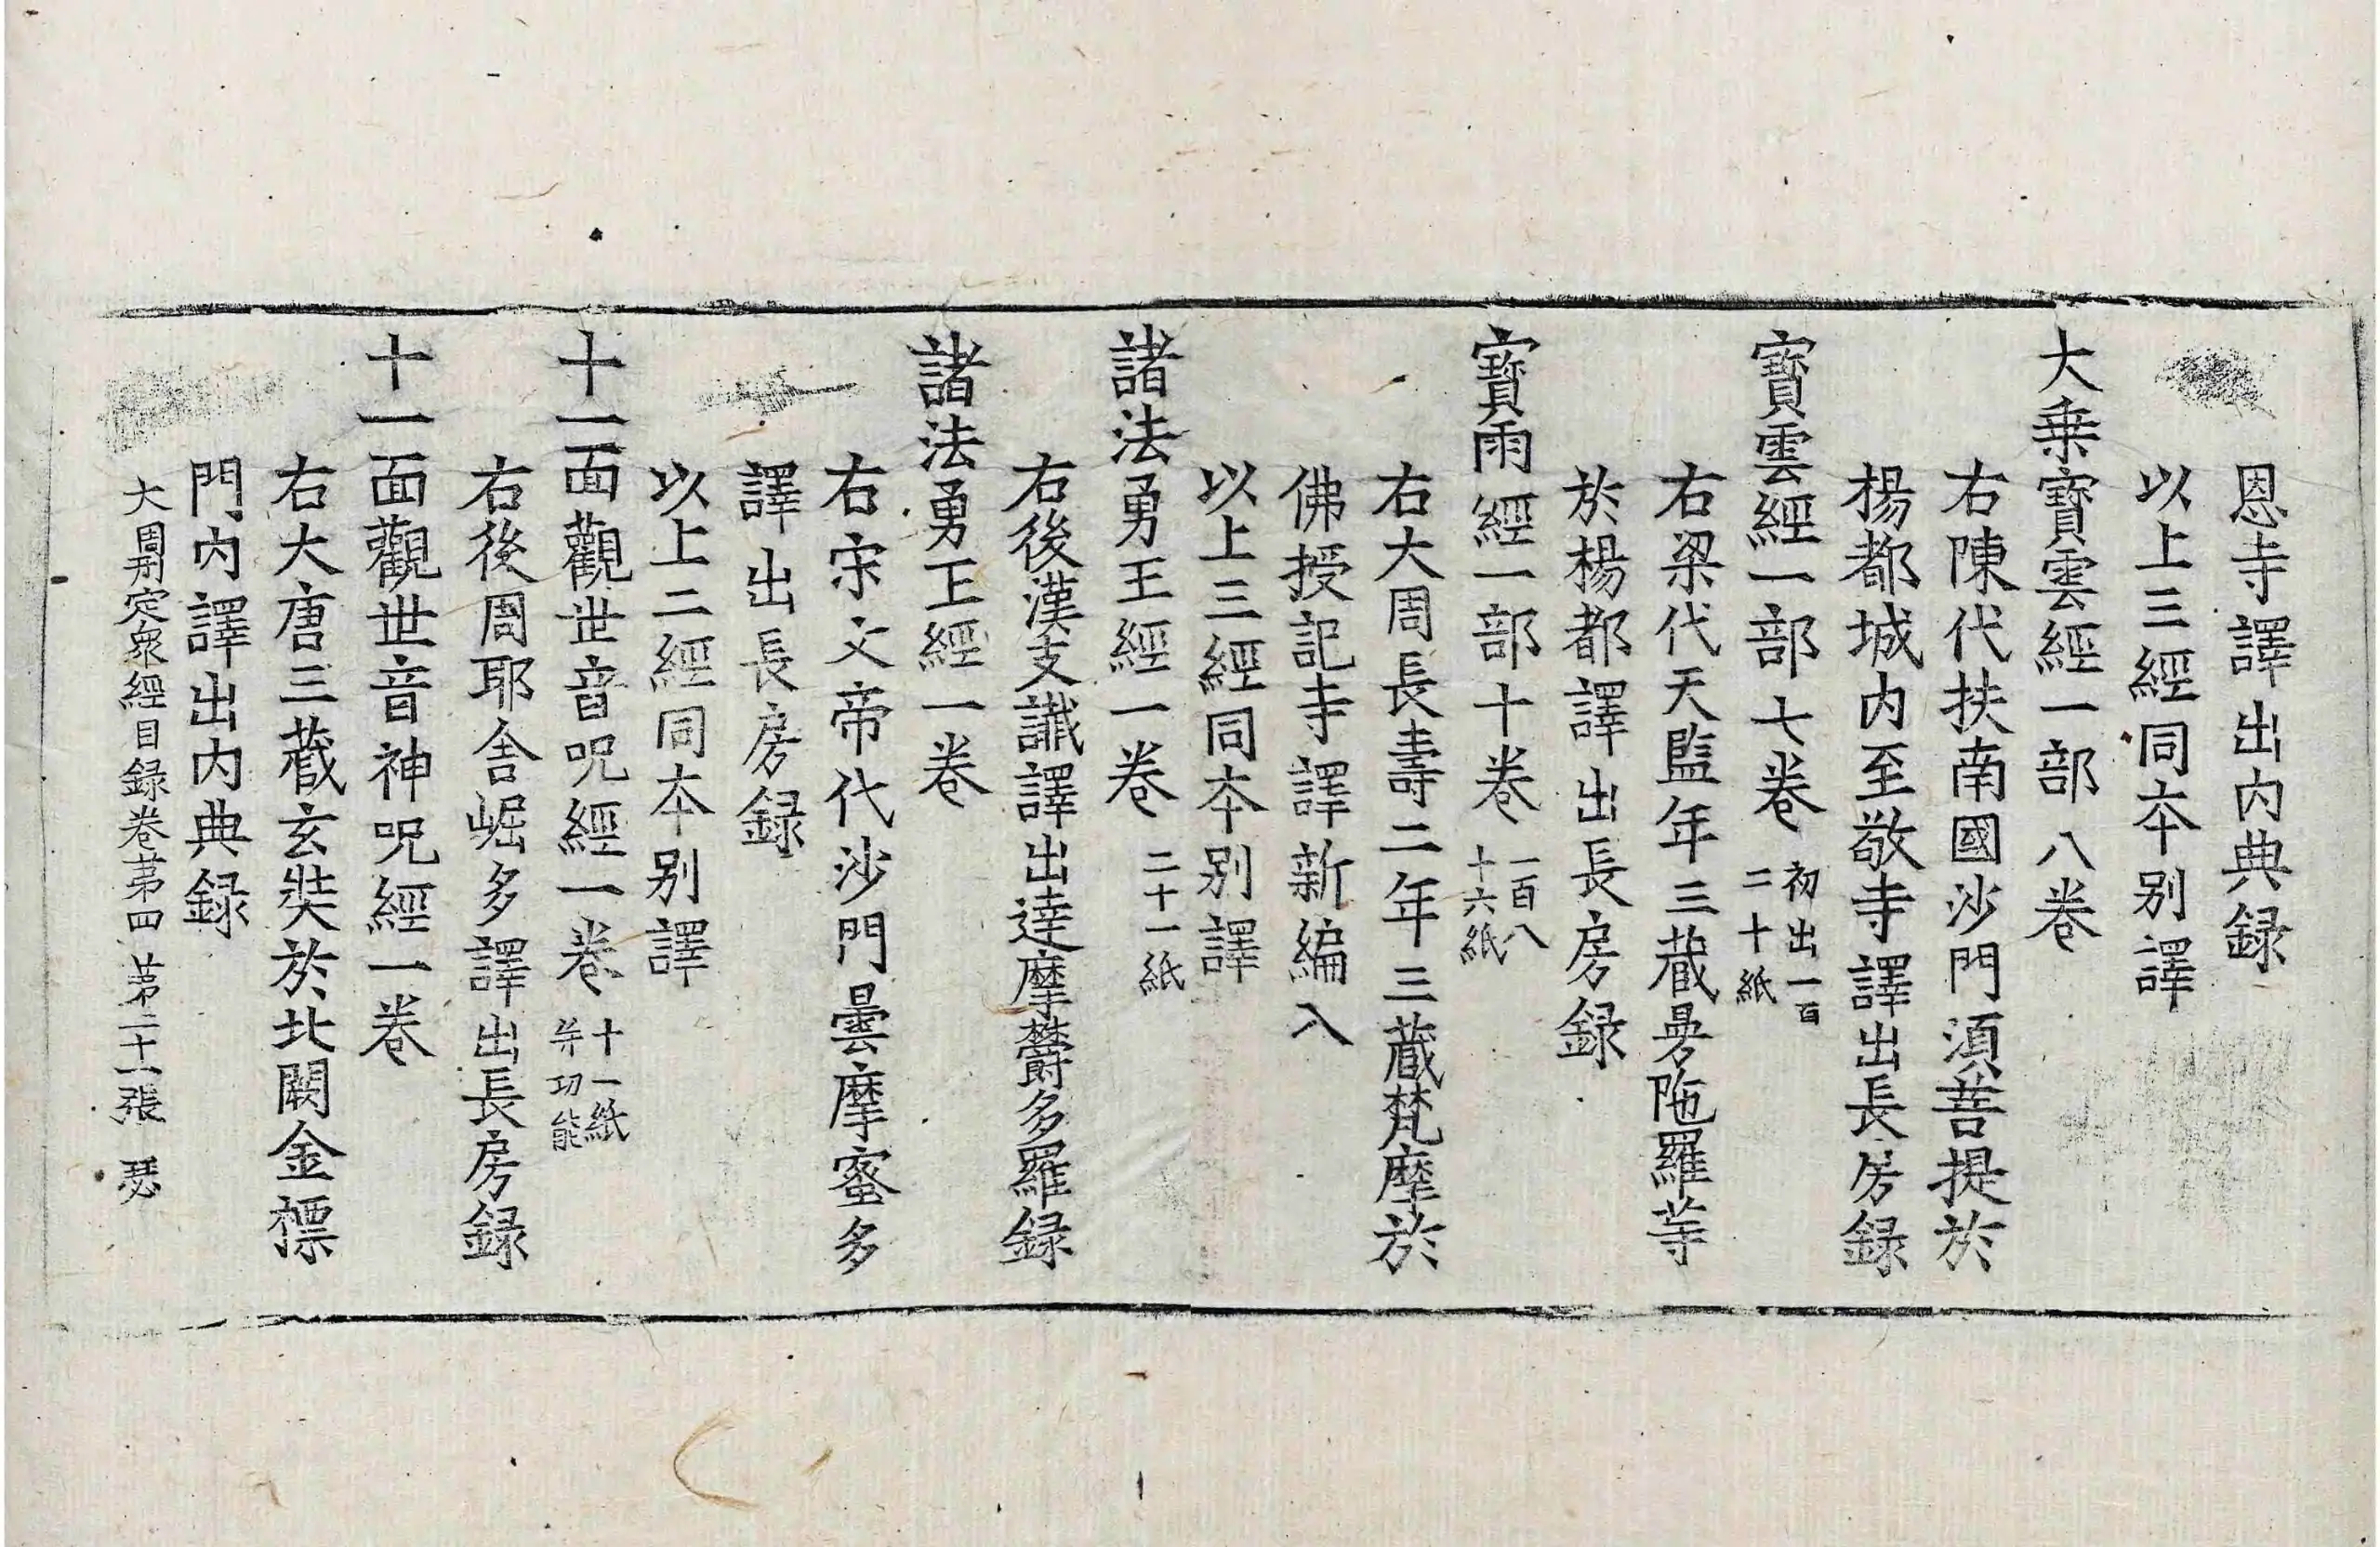 恩寺譯出內典録
以上三經同本别譯
大乗寶雲經一部八卷
右陳代扶南國沙門湏菩提於
楊都城内至敬寺譯出長房録
寶雲經一部七卷 初出一百二十紙
右梁代天監年三藏曼陁羅等
於楊都譯出長房録
寶雨經一部十卷 一百八十六紙
右大周長壽二年三藏梵摩於
佛授記寺譯新編入
以上三經同本别譯
諸法勇王經一卷 二十一紙
右後漢支讖譯出達摩欝多羅録
諸法勇王經一卷
右宋文帝代沙門曇摩蜜多
譯出長房録
以上二經同本别譯
十一面觀世音呪經一卷 十一紙并功能
右後周耶舍崛多譯出長房録
十一面觀世音神呪經一卷
右大唐三藏玄奘於北闕金摽
門內譯出內典録
大周刋定衆經目録卷苐四 苐二十一張 瑟